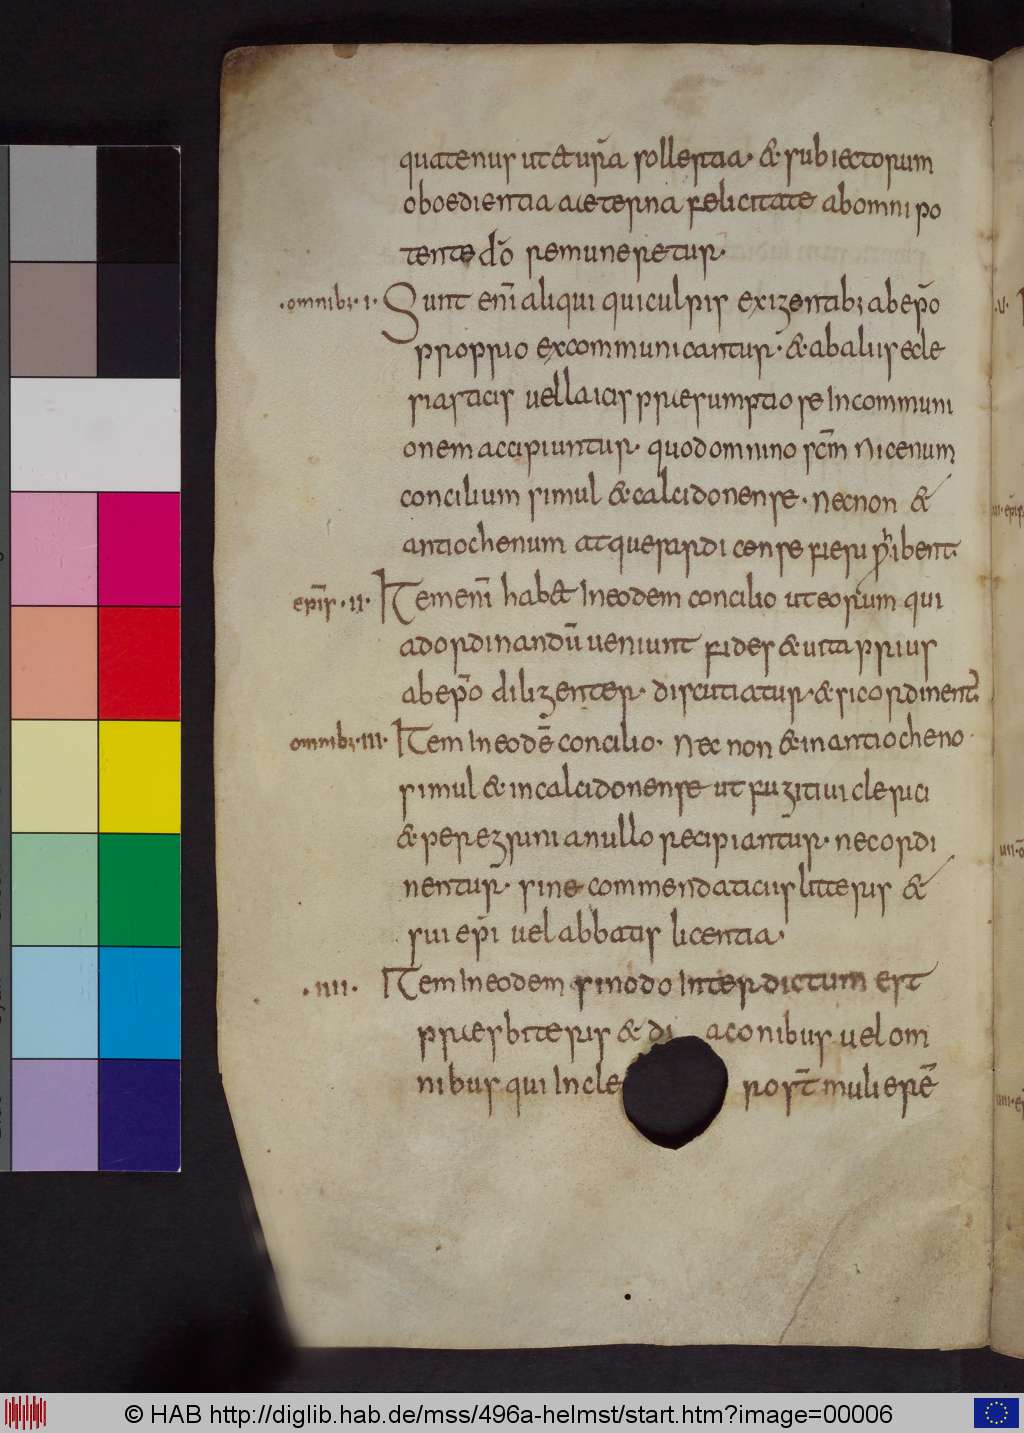 quatenus ut & ur̄a sollertia· & subiectorum
oboedientia aeterna felicitate ab omni po
tente dō remuneretur·
·omnibꝫ· I· Sunt enī aliqui qui culpis exigentibꝫ ab ep̄o
proprio excommunicantur· & ab aliis ecle
siasticis uel laicis praesumptiose In communi
onem accipiuntur· quod omnino scm̄ Nicenum
concilium simul & calcidonense· necnon &
antiochenum atque sardicense fieri ꝓhibent·
ep̄is· II· Item enī hab& In eodem concilio ut eorum qui
ad ordinandū ueniunt fides & uita prius
ab ep̄o diligenter· discutiatur· & sic ordinent᷑·
omnibꝫ· III· Item In eodē concilio· Nec non & in antiocheno·
simul & in calcidonense ut fugitiui clerici
& peregrini a nullo recipiantur· nec ordi
nentur· sine commendaticiis litteris &
sui ep̄i uel abbatis licentia·
·IIII· Item In eodem sinodo Interdictum est
praesbiteris & di aconibus uel om
nibus qui In cle ro st̄ mulierē
·U·
III· ep̄is
UII· o
UIII· ep̄
© HAB http://diglib.hab.de/mss/496a-helmst/start.htm?image=00006